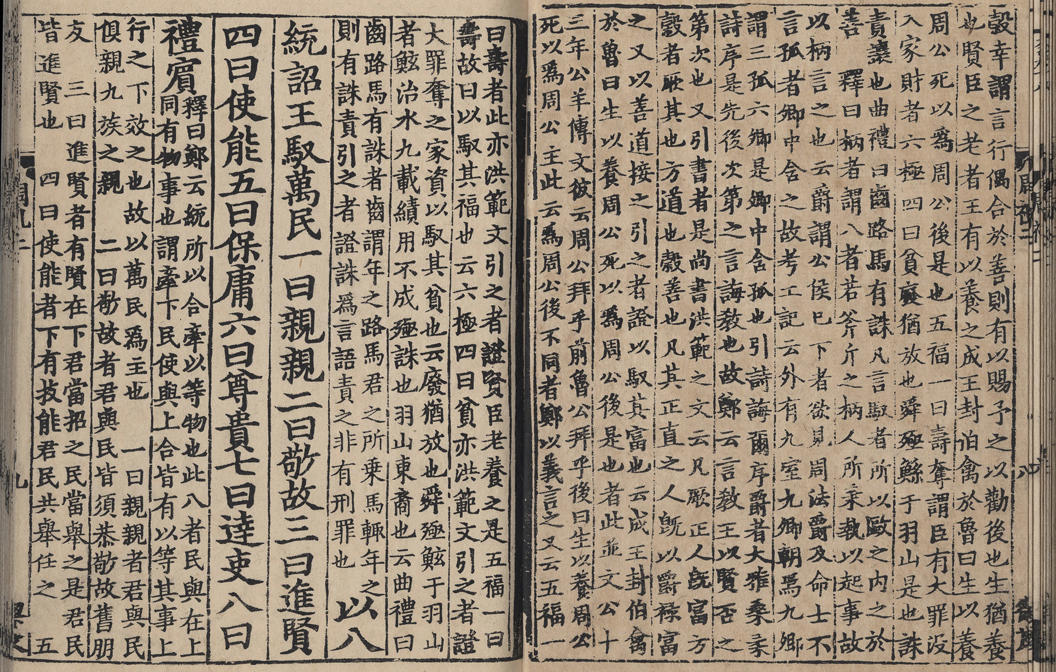 穀幸謂言行偶合於善則有以賜予之以勸後也生猶養
也賢臣之老者王有以養之成王封伯禽於魯曰生以養
周公死以為周公後是也五福一曰壽奪謂臣有大罪沒
入家財者六極四曰貧廢猶放也舜殛鯀于羽山是也誅
責讓也曲禮曰齒路馬有誅凡言馭者所以敺之內之於
善 釋曰柄者謂八者若斧斤之柄人所秉執以起事故
以柄言之也云爵謂公侯巳下者欲見周法爵及命士不
言孤者卿中含之故考工記云外有九室九卿朝焉九卿
謂三孤六卿是卿中含孤也引詩誨爾序爵者大雅桑柔
詩序是先後次第之言誨敎也故鄭云言敎王以賢否之
第次也又引書者是尚書洪範之文云凡厥正人旣富方
穀者厥其也方道也穀善也凡其正直之人旣以爵祿富
之又以善道接之引之者證以馭其富也云成王封伯禽
於魯曰生以養周公死以為周公後是也者此並文公十
三年公羊傳文彼云周公拜乎前魯公拜乎後曰生以養周公
死以為周公主此云為周公後不同者鄭以義言之又云五福一
曰壽者此亦洪範文引之者證賢臣老養之是五福一曰
壽故曰以馭其福也云六極四曰貧亦洪範文引之者證
大罪奪之家資以馭其貧也云廢猶放也舜殛鯀于羽山
者鯀治水九載績用不成殛誅也羽山東裔也云曲禮曰
齒路馬有誅者齒謂年之路馬君之所乗馬輒年之
則有誅責引之者證誅為言語責之非有刑罪也 以八
統詔王馭萬民一曰親親二曰敬故三曰進賢
四曰使能五曰保庸六曰尊貴七曰達吏八曰
禮賓釋曰鄭云統所以合牽以等物也此八者民與在上
同有物事也謂牽下民使與上合皆有以等其事上
行之下效之也故以萬民為主也 一曰親親者君與民
俱親九族之親 二曰敬故者君與民皆須恭敬故舊朋
友 三曰進賢者有賢在下君當招之民當舉之是君民
皆進賢也 四曰使能者下有技能君民共舉任之 五